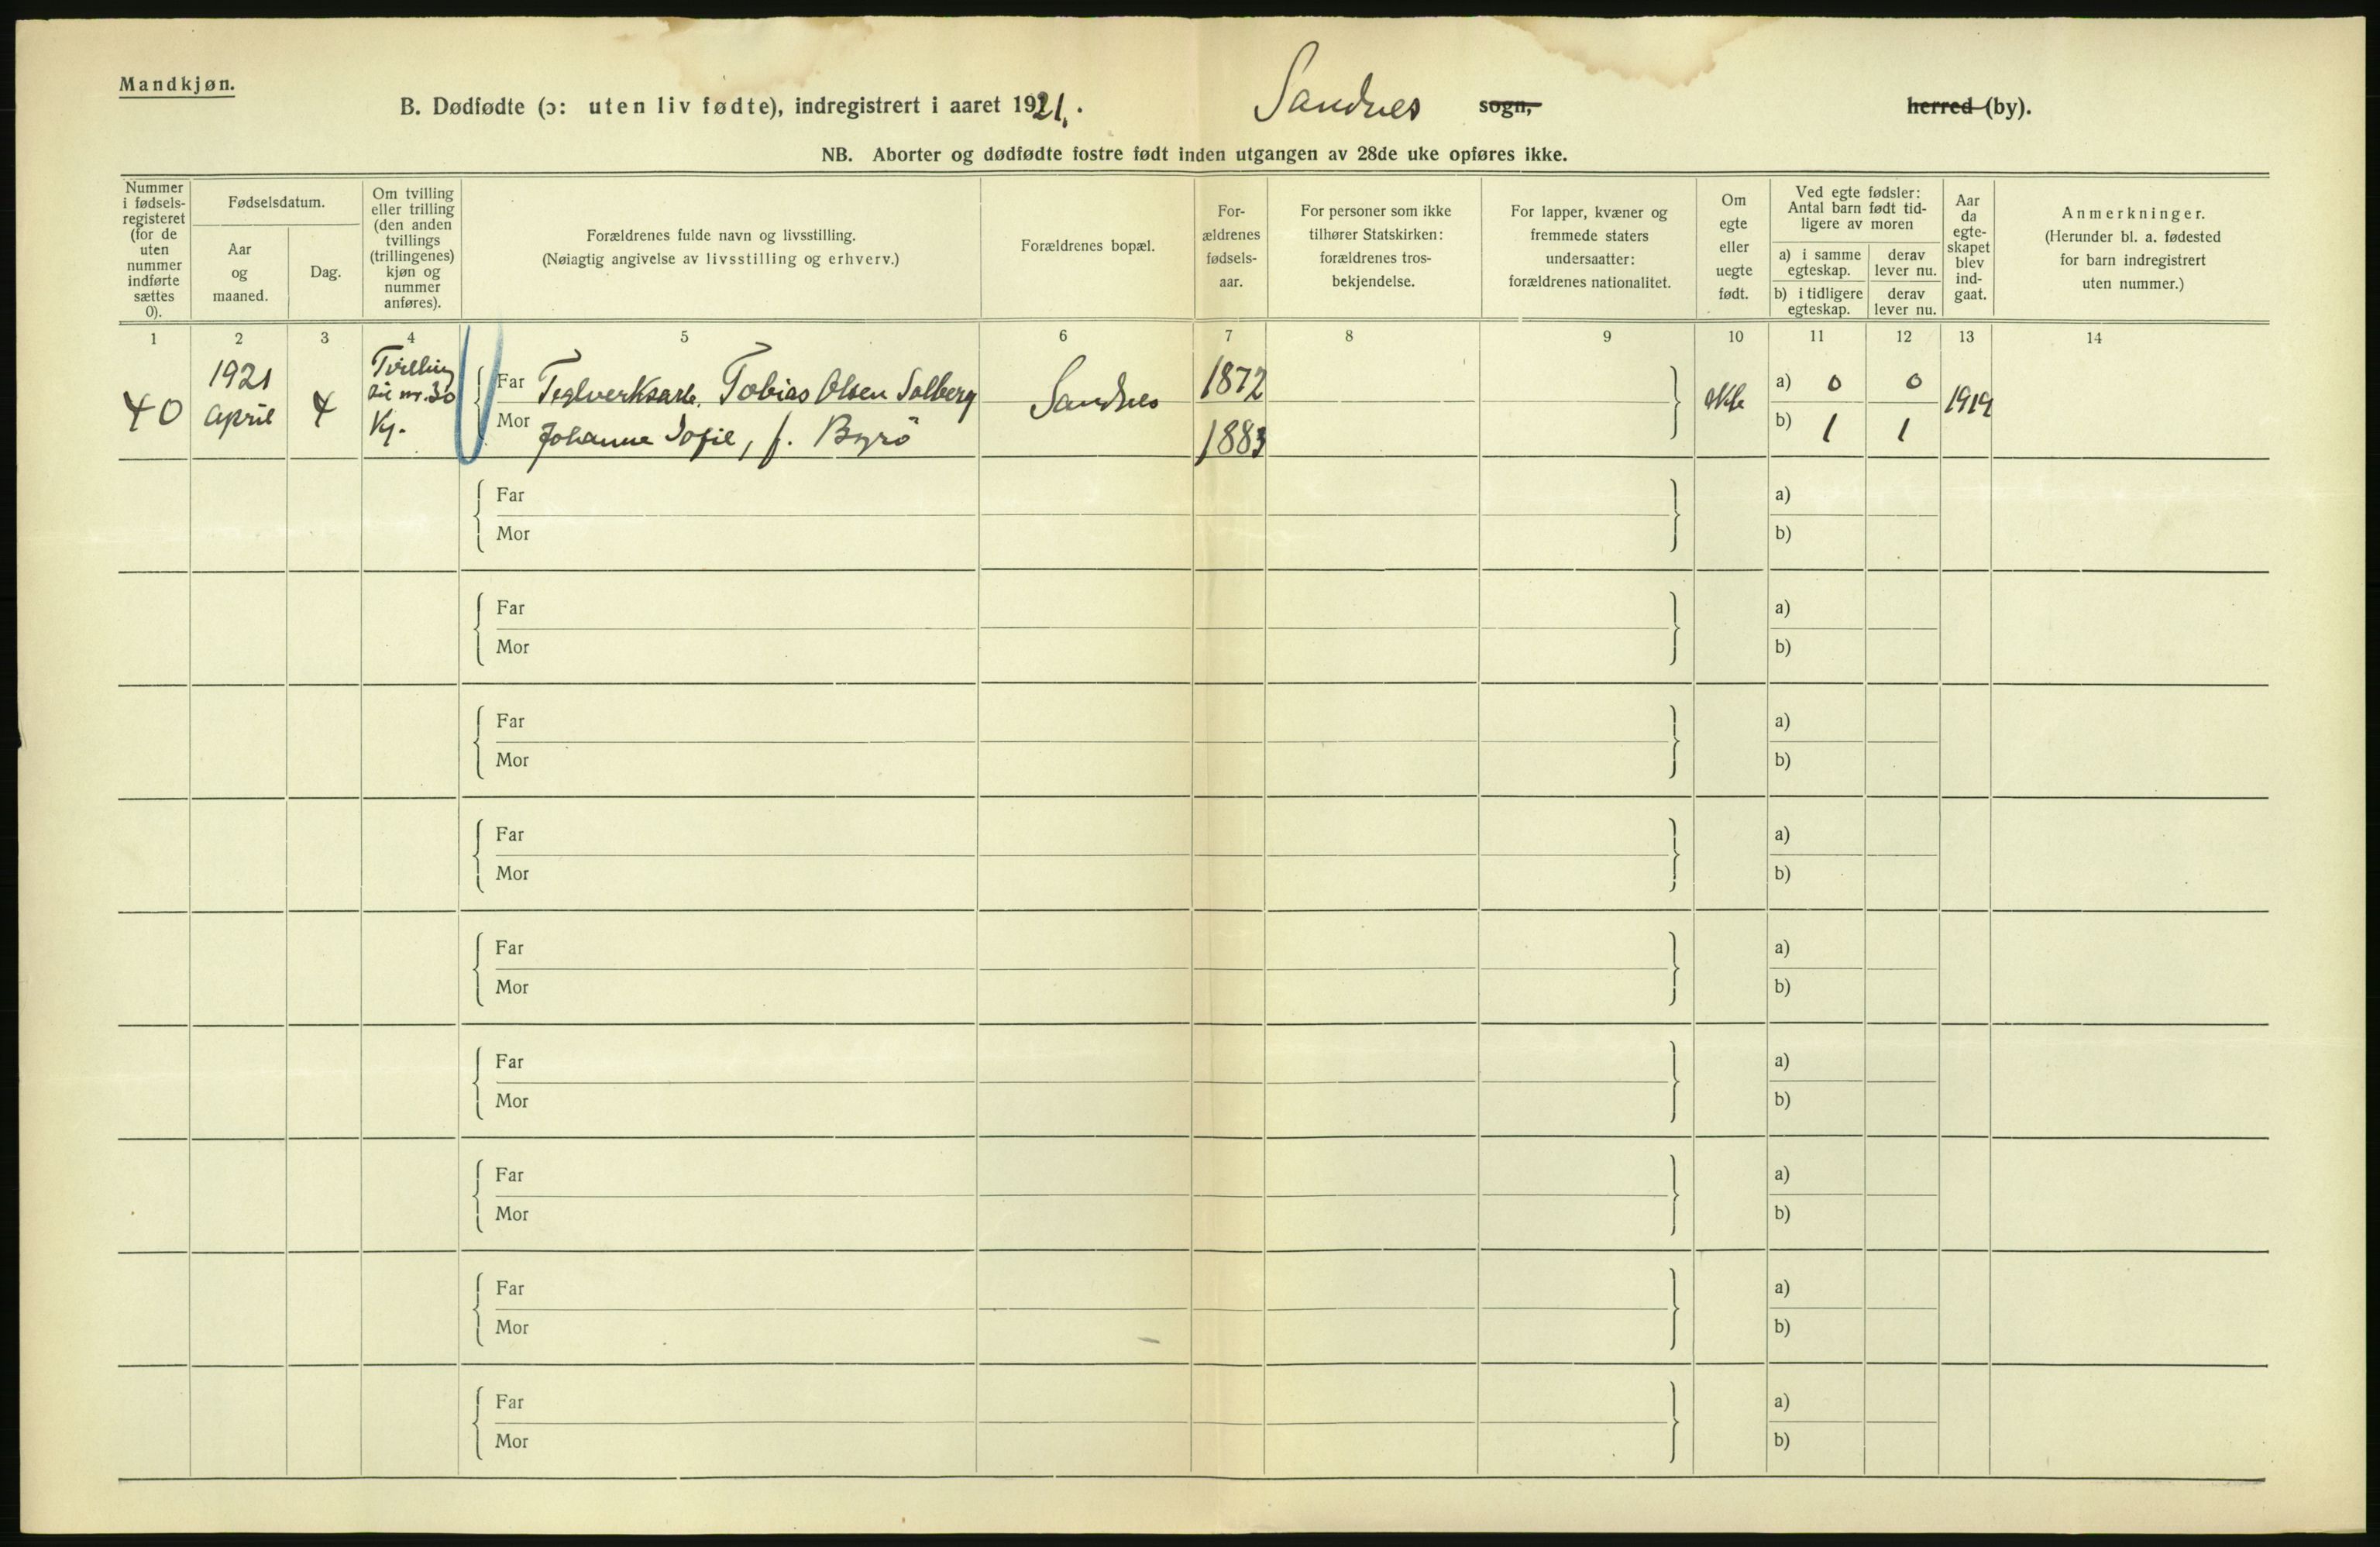 Mandkjøn.
B. Dødfødte (ɔ: uten liv fødte), indregistrert i aaret 1921. Sandnes sogn, herred (by).
NB. Aborter og dødfødte fostre født inden utgangen av 28de uke opføres ikke.
Nummer
i fødsels-
registeret
(for de
uten
nummer
indførte
sættes
0).
Fødselsdatum.
Aar
og
maaned.
Dag.
Om tvilling
eller trilling
(den anden
tvillings
(trillingenes)
kjøn og
nummer
anføres).
Forældrenes fulde navn og livsstilling.
(Nøiagtig angivelse av livsstilling og erhverv.)
Forældrenes bopæl.
For-
ældrenes
fødsels-
aar.
For personer som ikke
tilhører Statskirken:
forældrenes tros-
bekjendelse.
For lapper, kvæner og
fremmede staters
undersaatter:
forældrenes nationalitet.
Om
egte
eller
uegte
født.
Ved egte fødsler:
Antal barn født tid-
ligere av moren
a) i samme
egteskap.
derav
lever nu.
b) i tidligere
egteskap.
derav
lever nu.
Aar
da
egte-
skapet
blev
ind-
gaat.
Anmerkninger.
(Herunder bl. a. fødested
for barn indregistrert
uten nummer.)
1 2 3 4 5 6 7 8 9 10 11 12 13 14
40
1921
april
4
Tvilling
til nr. 30
Kj.
Far Teglverksarb. Tobias Olsen Solberg
Mor Johanne Sofie, f. Byrö
Sandnes
1872
1883
ekte
a) 0 0
b) 1 1
1919
Far a)
Mor b)
Far a)
Mor b)
Far a)
Mor b)
Far a)
Mor b)
Far a)
Mor b)
Far a)
Mor b)
Far a)
Mor b)
Far a)
Mor b)
Far a)
Mor b)